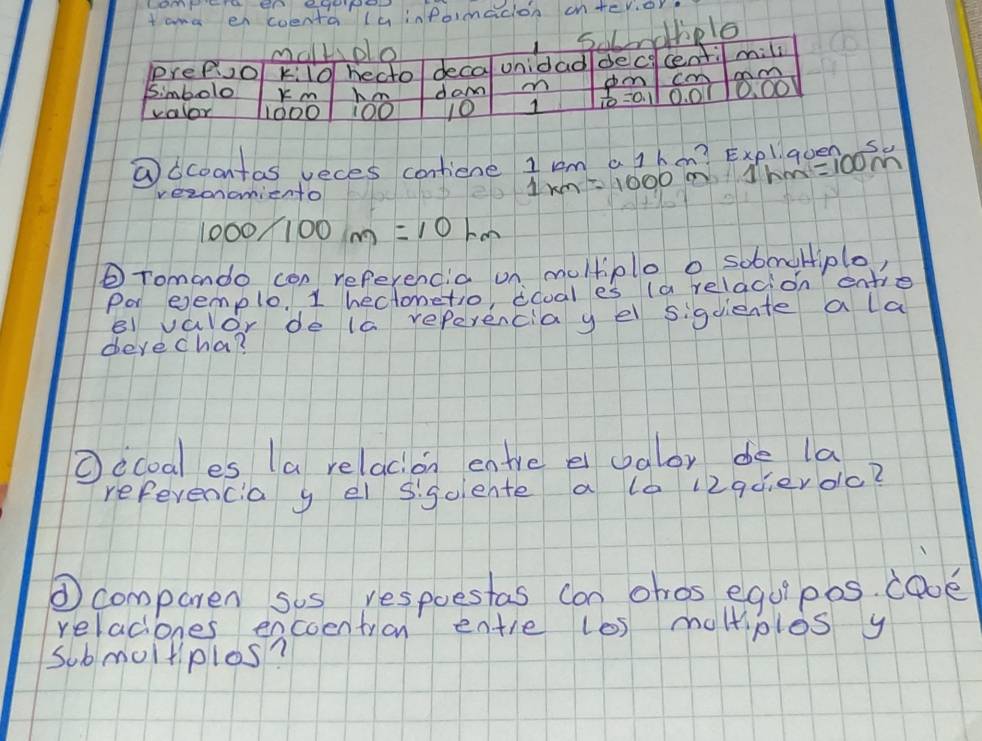 tama en cuenta la información anterior.
multiplo 1 Submultiplo
prefijo kilo hecto deca unidad deci centi mili
simbolo km hm dam m dm cm mm
valor 1000 100 10 1 10=0.1 0.01 0.001
ⓐ ¿cuantas veces contiene 1 km a 1 hm? Expliquen su
rezonamiento 1 km = 1000 m 1 hm = 100 m
1000/100 m = 10 hm
ⓑ Tomando con referencia un multiplo o submultiplo,
por ejemplo. 1 hectometro, ¿cual es la relación entre
el valor de la referencia y el siguiente a la
derecha?
ⓒ ¿cual es la relación entre el valor de la
referencia y el siguiente a la izquierda?
ⓓ comparen sus respuestas con otros equipos. ¿Qué
relaciones encuentran entre los multiplos y
submultiplos?